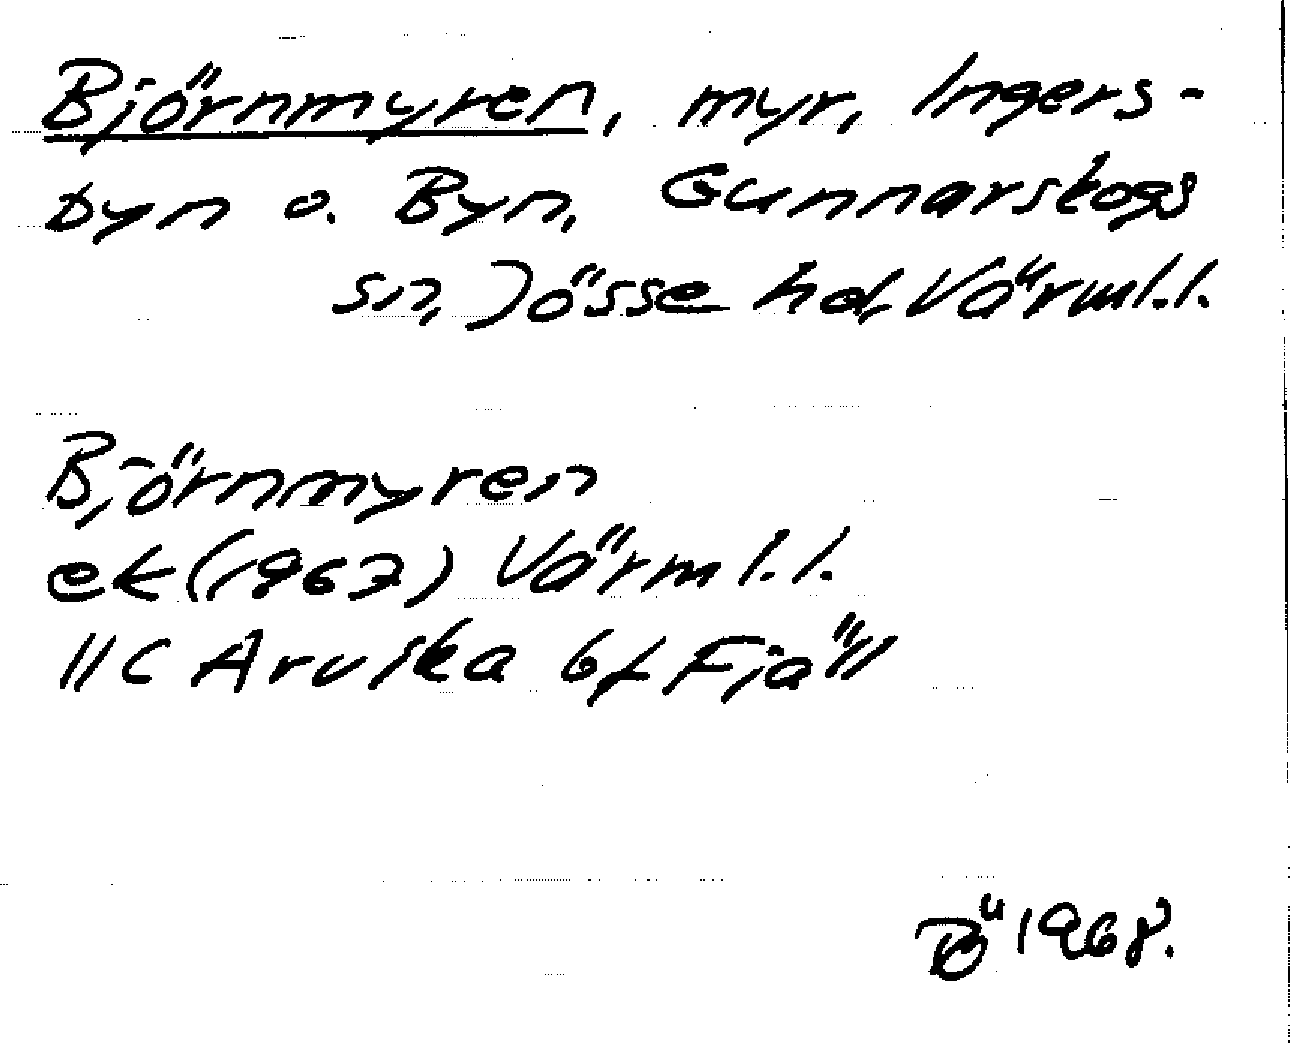 Björnmyren, myr, Ingers-
byn o. Byn, Gunnarskogs
sn, Jösse hd, Värml. l.
Björnmyren
ek (1967) Värml. l.
11C Arvika 6f Fjäll
BÖ 1968.